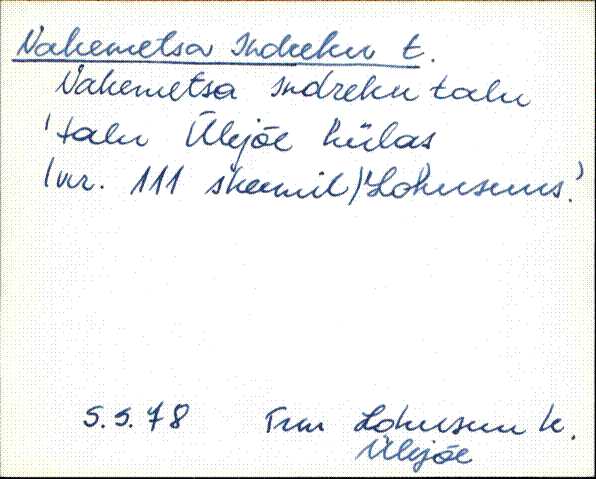 Nakemetsa Indreku t.
Nakemetsa Indreku talu
'talu Ülejõe külas
(nr. 111 skeemil) Lohusuus.'
5.5.78 Trm Lohusuu k.
Ülejõe